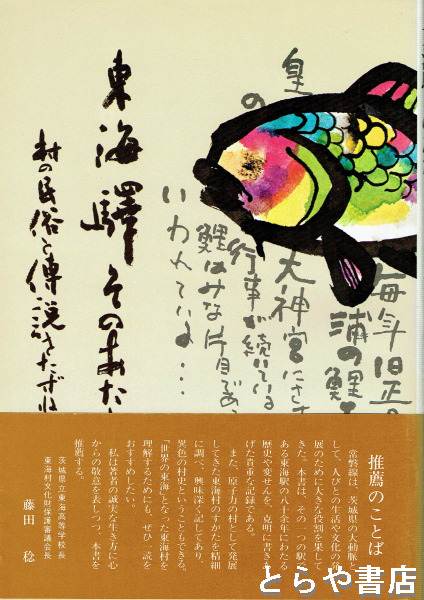 東海驛そのあた
村の民俗と傳説をたずね
皇
の
大神宮にささ
行事が続いている
鯉はみな片目であ
いわれている…
毎年旧正
浦の鯉
推薦のことば
常磐線は、茨城県の大動脈と
して、人びとの生活や文化の発
展のために大きな役割を果して
きた。本書は、その一つの駅で
ある東海駅の八十余年にわたる
歴史や変せんを、克明に書き上
げた貴重な記録である。
また、原子力の村として発展
してきた東海村のすがたを精細
に調べ、興味深く記してあり、
異色の村史ということもできる。
「世界の東海」となった東海村を
理解するためにも、ぜひ一読を
おすすめしたい。
私は著者の誠実な生き方に心
からの敬意を表しつつ、本書を
推薦する。
茨城県立東海高等学校長
東海村文化財保護審議会長
藤田 稔
とらや書店